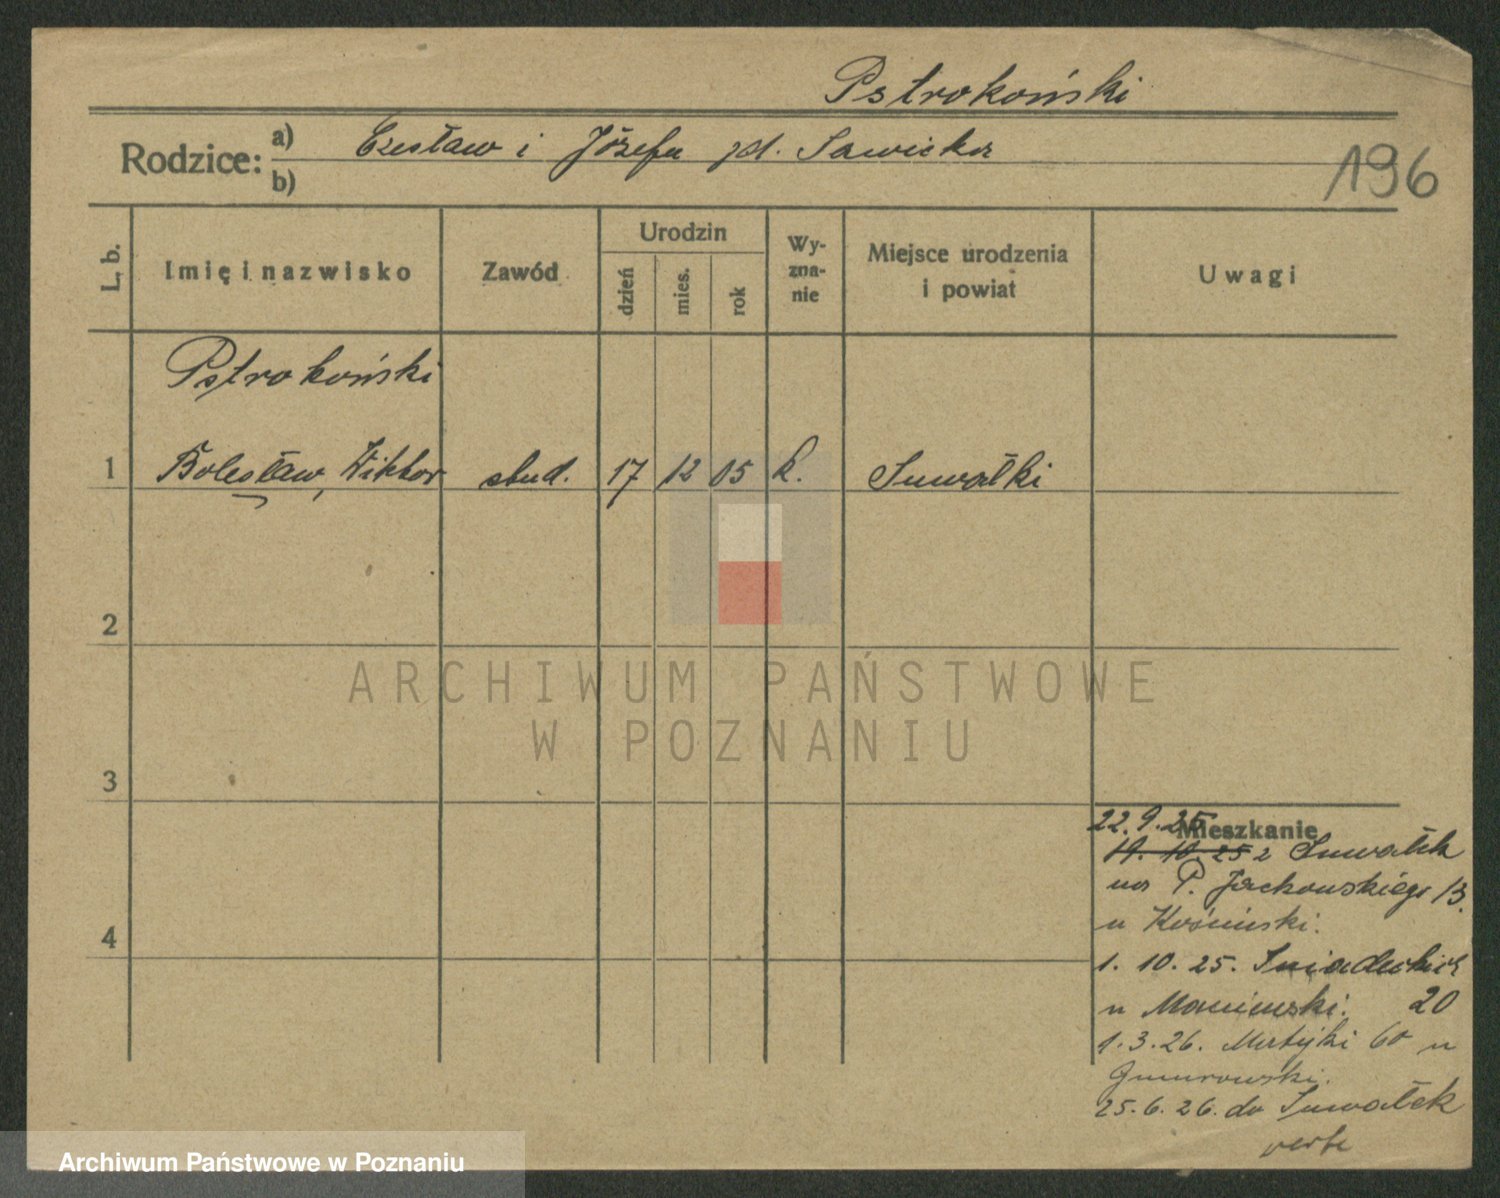 Pstrokoński
Rodzice: a) Czesław i Józefa zd. Sawicka
b)
196
L. b.
Imię i nazwisko
Zawód
Urodzin
dzień
mies.
rok
Wy-
zna-
nie
Miejsce urodzenia
i powiat
Uwagi
Pstrokoński
1 Bolesław, Wiktor stud. 17 12 05 k. Suwałki
2
3
4
Mieszkanie
22.9.25
19. 10. 25 z Suwałk
na P. Jackowskiego 13.
u
1. 10. 25. Śniadeckich
u 20
1.3.26. Matejki 60 u
Gmurowski.
25.6.26. do Suwałek
verte
ARCHIWUM PAŃSTWOWE
W POZNANIU
Archiwum Państwowe w Poznaniu